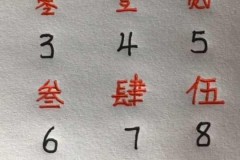 3 4 5
叁 肆 伍
6 7 8